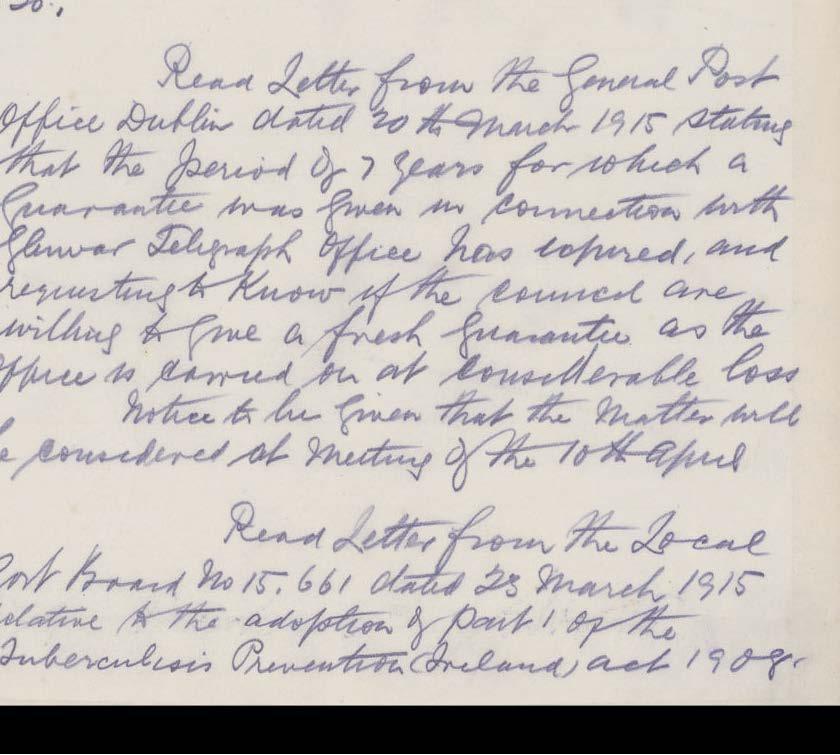 Read Letter from the General Post
Office Dublin dated 20th March 1915 stating
that the period of 7 years for which a
Guarantee was given in connection with
Glenvar Telegraph Office has expired, and
requesting to know if the council are
willing to give a fresh guarantee as the
Office is carried on at considerable loss
Notice to be given that the matter will
be considered at meeting of the 10th April
Read Letter from the Local
Govt Board No 15.661 dated 23 March 1915
relative to the adoption of part 1 of the
Tuberculosis Prevention (Ireland) act 1908.